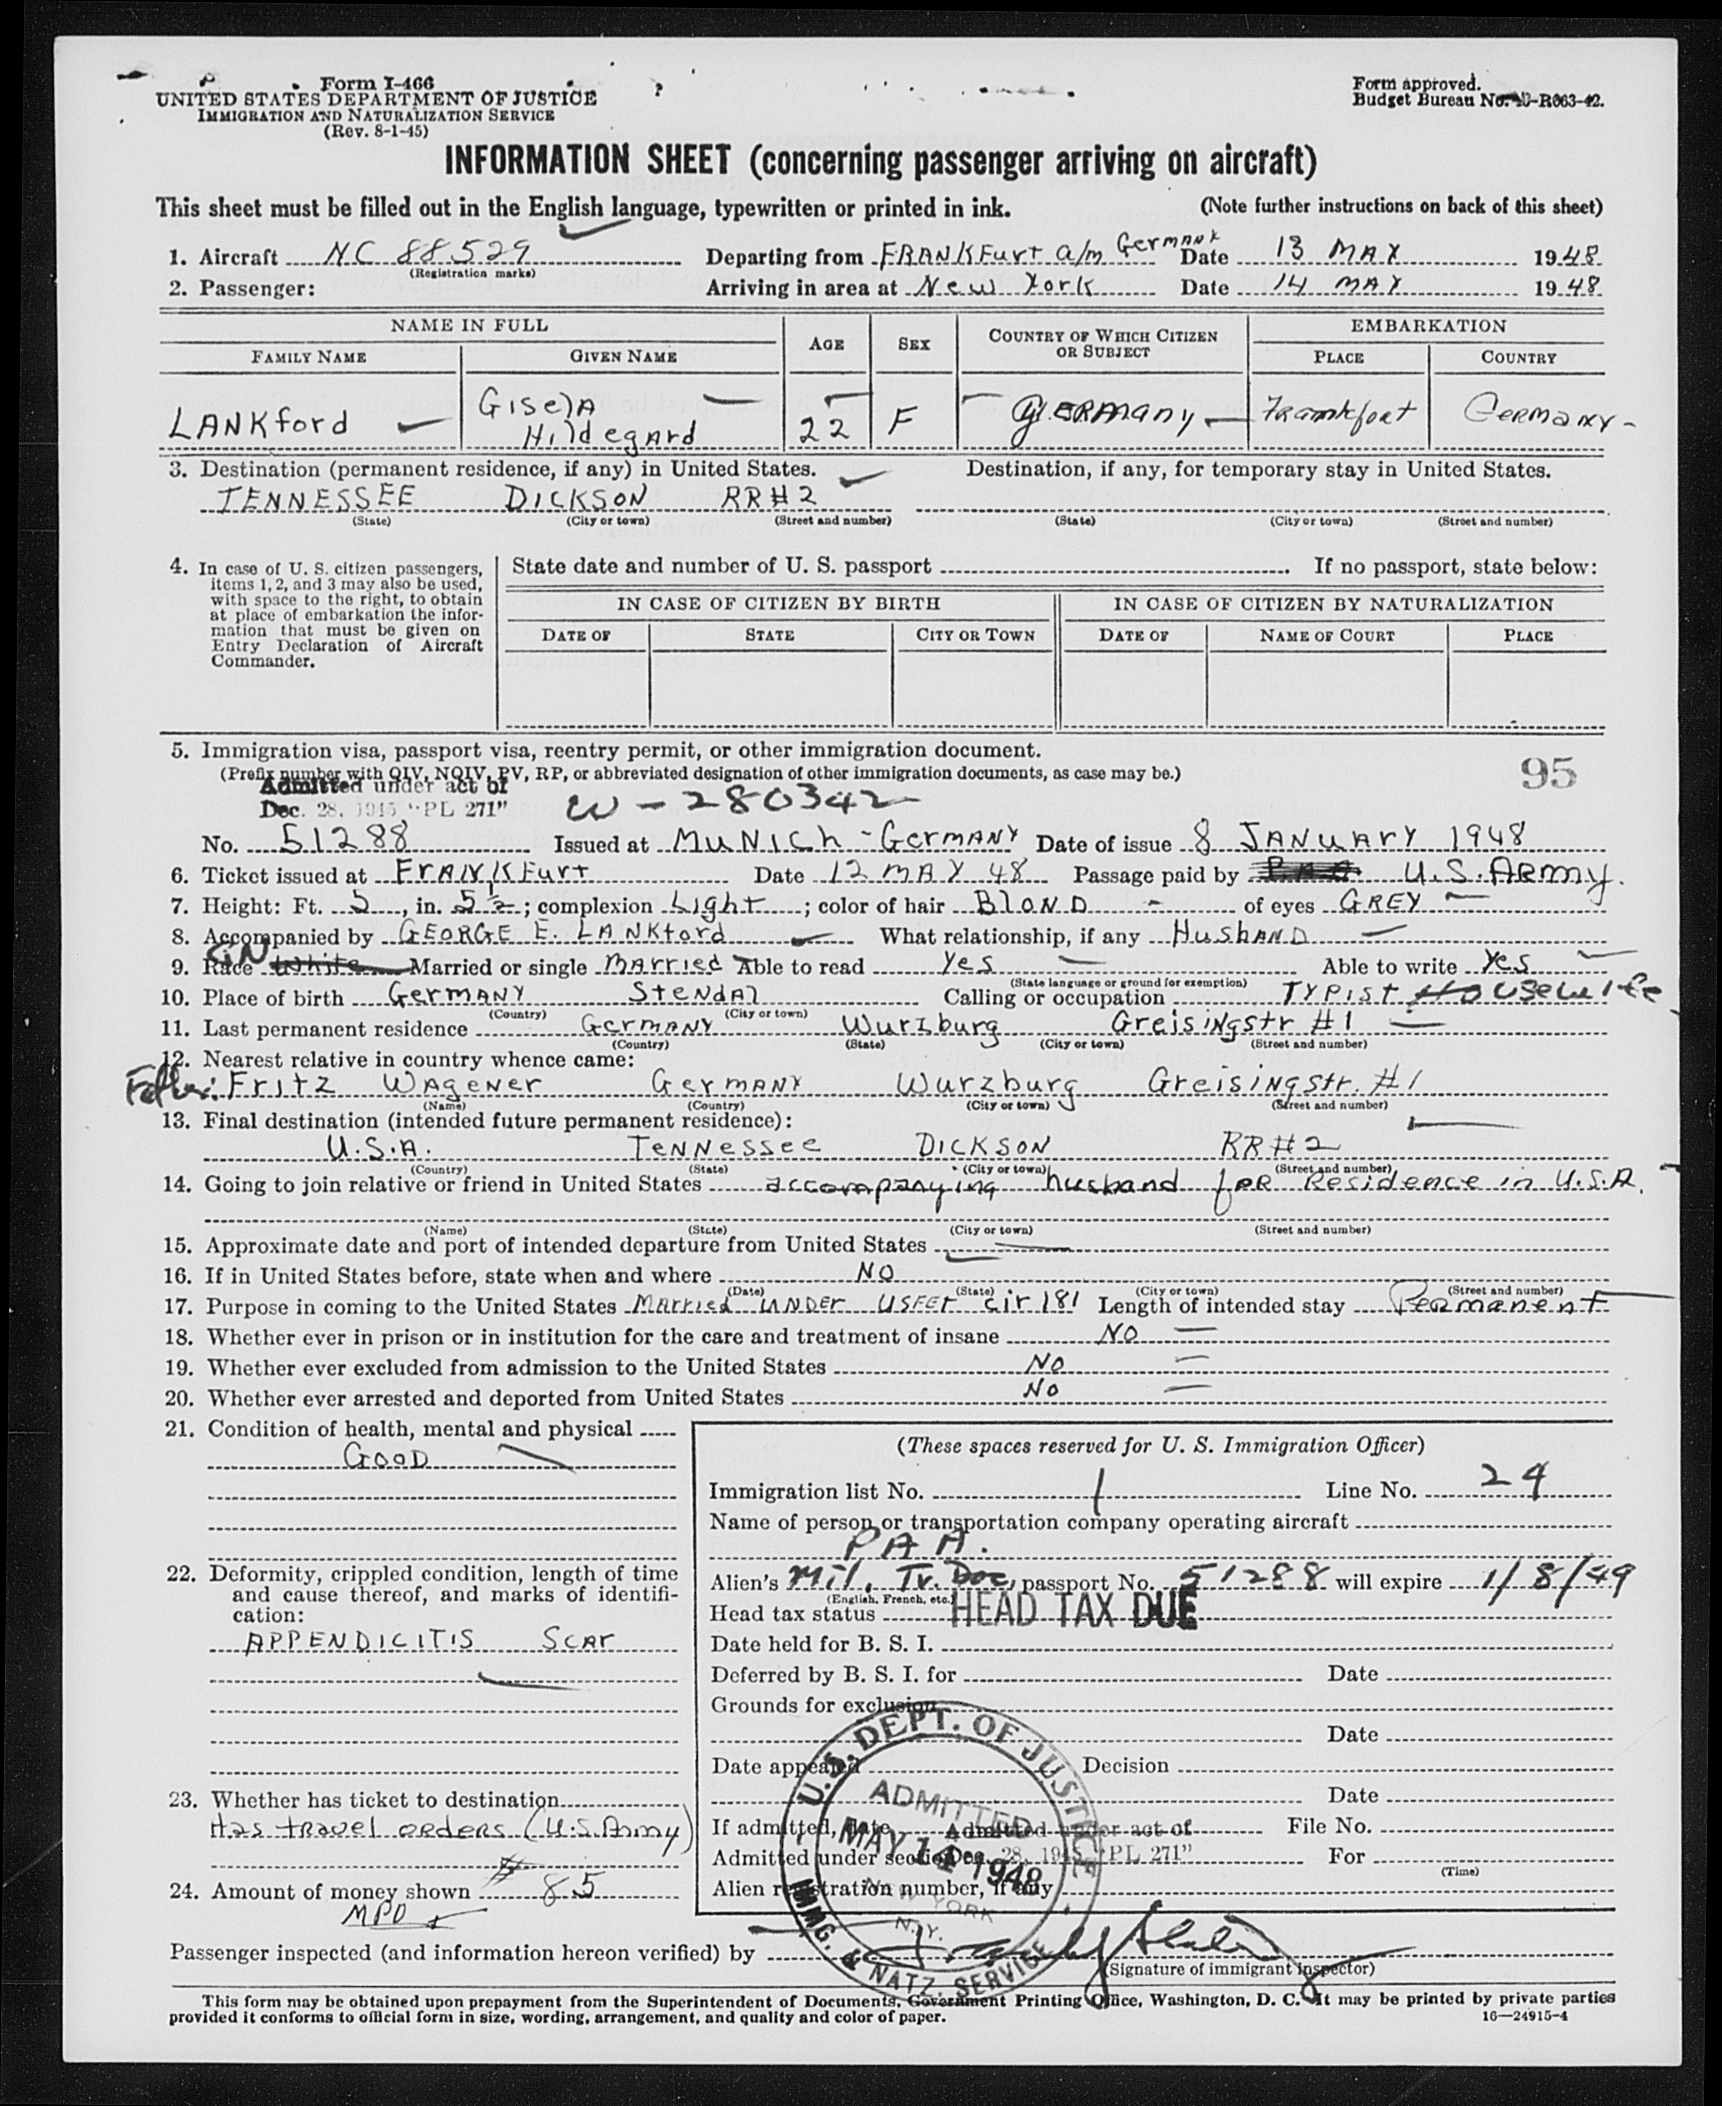 Form I-466
UNITED STATES DEPARTMENT OF JUSTICE
IMMIGRATION AND NATURALIZATION SERVICE
(Rev. 8-1-45)
Form approved.
Budget Bureau No. 43-R063-42.
INFORMATION SHEET (concerning passenger arriving on aircraft)
This sheet must be filled out in the English language, typewritten or printed in ink. (Note further instructions on back of this sheet)
1. Aircraft NC 88529 Departing from FRANKFurt a/m GermANY Date 13 MAY 1948
(Registration marks)
2. Passenger: Arriving in area at New York Date 14 MAY 1948
NAME IN FULL AGE SEX COUNTRY OF WHICH CITIZEN OR SUBJECT EMBARKATION
FAMILY NAME GIVEN NAME PLACE COUNTRY
LANKford GiselA Hildegard 22 F GERMANY Frankfort Germany
3. Destination (permanent residence, if any) in United States. Destination, if any, for temporary stay in United States.
TENNESSEE DICKSON RR#2
(State) (City or town) (Street and number) (State) (City or town) (Street and number)
4. In case of U. S. citizen passengers, items 1, 2, and 3 may also be used, with space to the right, to obtain at place of embarkation the information that must be given on Entry Declaration of Aircraft Commander.
State date and number of U. S. passport If no passport, state below:
IN CASE OF CITIZEN BY BIRTH IN CASE OF CITIZEN BY NATURALIZATION
DATE OF STATE CITY OR TOWN DATE OF NAME OF COURT PLACE
5. Immigration visa, passport visa, reentry permit, or other immigration document.
(Prefix number with QIV, NQIV, PV, RP, or abbreviated designation of other immigration documents, as case may be.)
95
Admitted under act of
Dec. 28, 1945 "PL 271" W-280342
No. 51288 Issued at MUNICh - GermANY Date of issue 8 JANUARY 1948
6. Ticket issued at FRANKFurt Date 12 MAY 48 Passage paid by PAA U.S. ARMY.
7. Height: Ft. 5, in. 5 1/2; complexion Light; color of hair BLOND of eyes GREY
8. Accompanied by GEORGE E. LANKford What relationship, if any HusbAND
9. Race White Married or single MArried Able to read Yes Able to write Yes
(State language or ground for exemption)
10. Place of birth GermANY StendAl Calling or occupation TYPIST HOUSEWIFE
(Country) (City or town)
11. Last permanent residence GermANY Wurzburg Greisingstr #1
(Country) (State) (City or town) (Street and number)
12. Nearest relative in country whence came:
Father: Fritz WAgener GermANY Wurzburg Greisingstr. #1
(Name) (Country) (City or town) (Street and number)
13. Final destination (intended future permanent residence):
U.S.A. TeNNessee DICKSON RR#2
(Country) (State) (City or town) (Street and number)
14. Going to join relative or friend in United States accompanying husband for Residence in U.S.A.
(Name) (State) (City or town) (Street and number)
15. Approximate date and port of intended departure from United States
16. If in United States before, state when and where NO
(Date) (State) (City or town) (Street and number)
17. Purpose in coming to the United States MArried UNDEr USFET cir 181 Length of intended stay Permanent
18. Whether ever in prison or in institution for the care and treatment of insane NO
19. Whether ever excluded from admission to the United States NO
20. Whether ever arrested and deported from United States No
21. Condition of health, mental and physical
GOOD
22. Deformity, crippled condition, length of time and cause thereof, and marks of identification:
APPENDICITIS SCAr
23. Whether has ticket to destination
Has travel orders (U.S. Army)
24. Amount of money shown $ 85
(These spaces reserved for U. S. Immigration Officer)
Immigration list No. 1 Line No. 24
Name of person or transportation company operating aircraft
PAA.
Alien's Mil. Tr. Doc, passport No. 51288 will expire 1/8/49
(English, French, etc.)
Head tax status HEAD TAX DUE
Date held for B. S. I.
Deferred by B. S. I. for Date
Grounds for exclusion
Date
Date appealed Decision
Date
If admitted, date Admitted under act of File No.
Admitted under section Dec. 28, 1945 "PL 271" For
(Time)
Alien registration number, if any
U.S. DEPT. OF JUSTICE
ADMITTED
MAY 14 1948
NEW YORK
N.Y.
IMMG. & NATZ. SERVICE
Passenger inspected (and information hereon verified) by
(Signature of immigrant inspector)
This form may be obtained upon prepayment from the Superintendent of Documents, Government Printing Office, Washington, D. C. It may be printed by private parties
provided it conforms to official form in size, wording, arrangement, and quality and color of paper. 16—24915-4